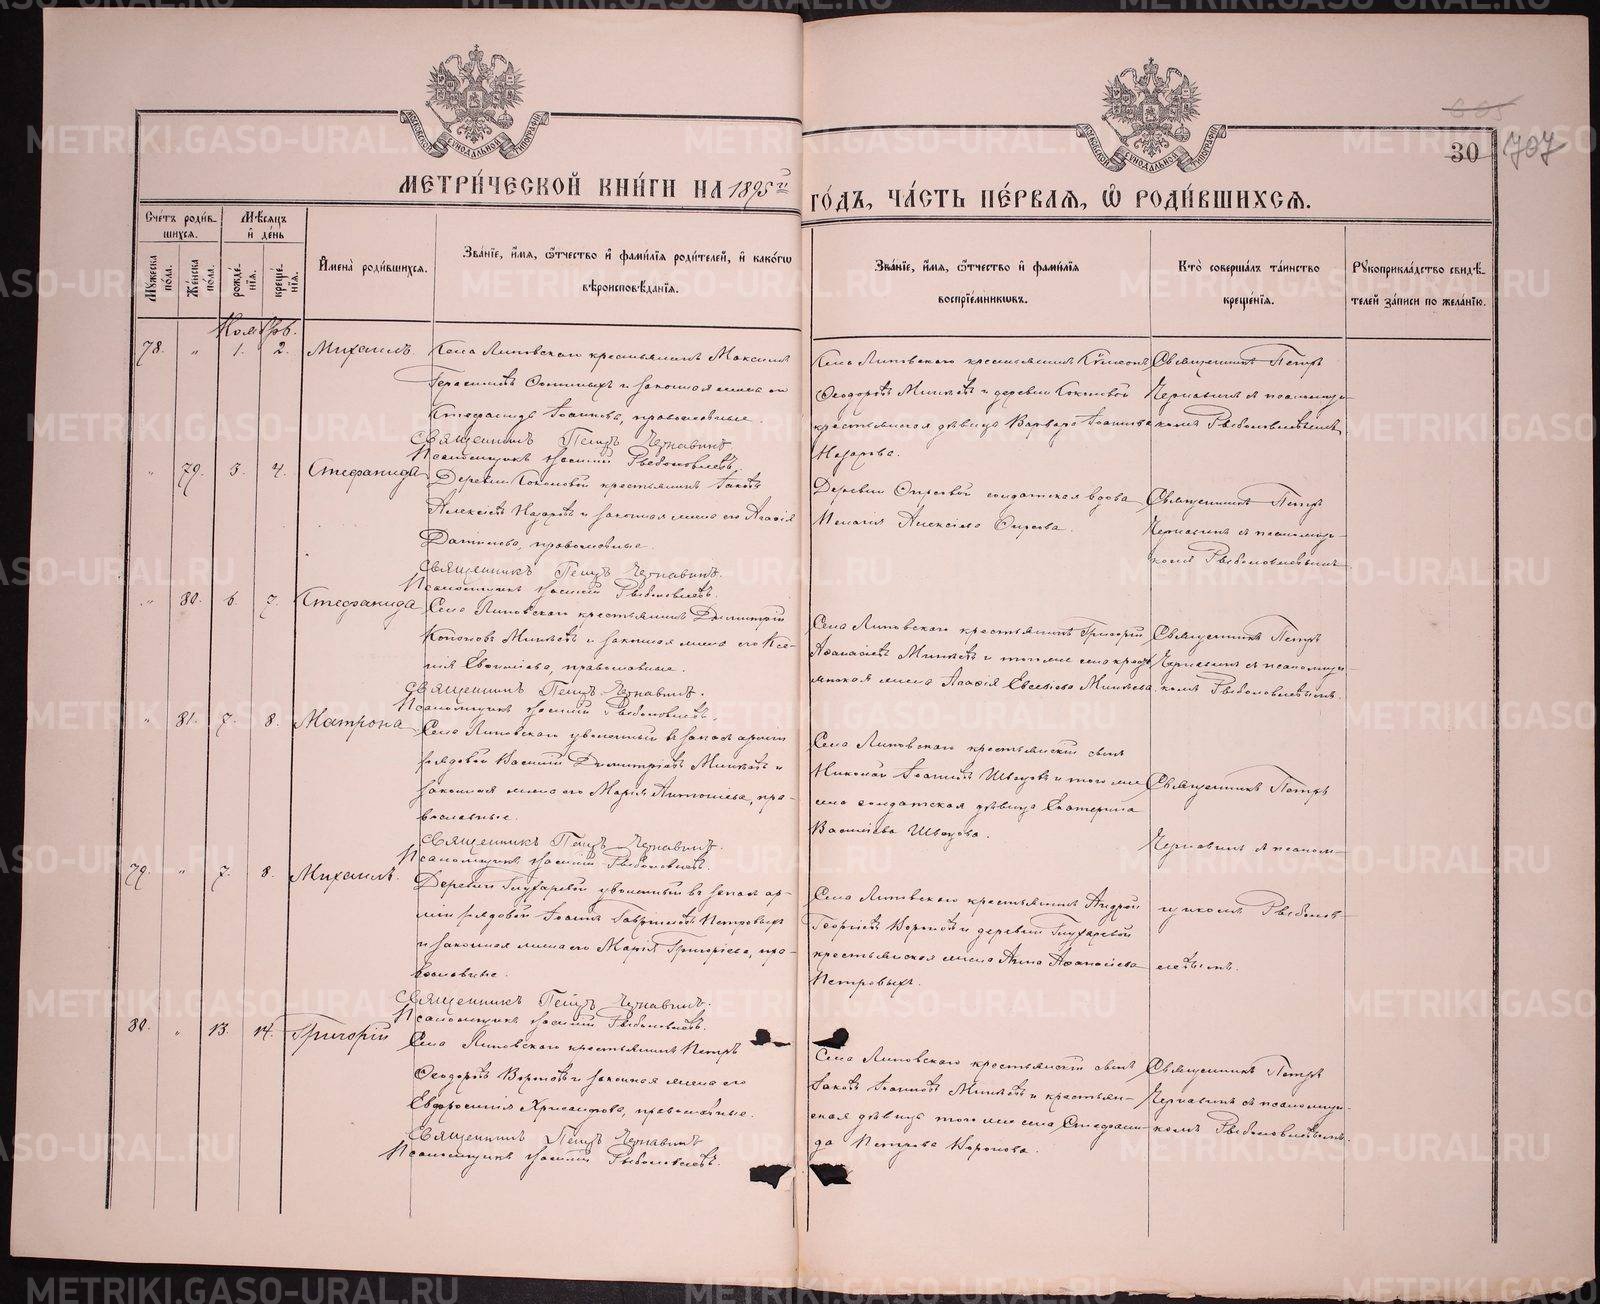 МЕТРИ́ЧЕСКОЙ КНИ́ГИ НА 1895й ГО́ДЪ, ЧА́СТЬ ПЕ́РВАѦ, Ѽ РОДИ́ВШИХСѦ.
30 707
Сче́тъ роди́вшихся.
Мѣ́сяцъ и де́нь
Мꙋ́жеска по́ла.
Же́нска по́ла.
рожде́нїя.
креще́нїя.
Имена̀ роди́вшихся.
Зва́нїе, имя, ѻ҆́тчество и фами́лїя роди́телей, и како́гѡ вѣроисповѣ́данїя.
Зва́нїе, имя, ѻ҆́тчество и фами́лїя воспрїе́мникѡвъ.
Кто̀ соверша́лъ та́инство креще́нїя.
Рꙋкоприкла́дство свидѣ́телей за́писи по жела́нїю.
Ноябрь.
78. " 1. 2. Михаилъ
Села Липовскаго крестьянинъ Максимъ
Герасимовъ и законная жена его
Стефанида Іоаннова, православные.
Священникъ Петръ Чернавинъ
Псаломщикъ Василій Рыболовлевъ.
Села Липовскаго крестьянинъ
Ѳеодоровъ Минѣевъ и деревни Соколовой
крестьянская дѣвица Варвара Іоаннова
Назарова.
Священникъ Петръ
Чернавинъ съ псаломщи-
комъ Рыболовлевымъ
" 79. 3. 4. Стефанида
Деревни Соколовой крестьянинъ Іаковъ
Алексіевъ Назаровъ и законная жена его Агафія
православные.
Священникъ Петръ Чернавинъ.
Псаломщикъ Василій Рыболовлевъ.
Деревни солдатская вдова
Пелагія Алексіева
Священникъ Петръ
Чернавинъ съ псаломщи-
комъ Рыболовлевымъ
" 80. 6. 7. Стефанида
Села Липовскаго крестьянинъ Димитрій
Кононовъ Минѣевъ и законная жена его Ксе-
нія Евфиміева, православные.
Священникъ Петръ Чернавинъ.
Псаломщикъ Василій Рыболовлевъ.
Села Липовскаго крестьянинъ Григорій
Аѳанасіевъ Минѣевъ и того же села кресть-
янская жена Агафія Евсевіева Минѣева.
Священникъ Петръ
Чернавинъ съ псаломщи-
комъ Рыболовлевымъ.
" 81. 7. 8. Матрона
Села Липовскаго уволенный въ запасъ арміи
рядовой Василій Димитріевъ Минѣевъ и
законная жена его Марія Антоніева, пра-
вославные.
Священникъ Петръ Чернавинъ.
Псаломщикъ Василій Рыболовлевъ.
Села Липовскаго крестьянскій сынъ
Николай Іоанновъ Швецовъ и того же
села солдатская дѣвица Екатерина
Василіева Швецова.
Священникъ Петръ
Чернавинъ съ псалом-
79. " 7. 8. Михаилъ.
Деревни Глухаревой уволенный въ запасъ ар-
міи рядовой Іоаннъ Гавріиловъ Петровыхъ
и законная жена его Марія Григоріева, пра-
вославные.
Священникъ Петръ Чернавинъ.
Псаломщикъ Василій Рыболовлевъ.
Села Липовскаго крестьянинъ Андрей
Георгіевъ и деревни Глухаревой
крестьянская жена Анна Аѳанасіева
Петровыхъ.
щикомъ Рыболов-
левымъ.
80. " 13. 14. Григорій
Села Липовскаго крестьянинъ Петръ
Ѳеодоровъ и законная жена его
Евфросинія Хрисанфова, православные.
Священникъ Петръ Чернавинъ
Псаломщикъ Василій Рыболовлевъ.
Села Липовскаго крестьянскій сынъ
Іаковъ Іоанновъ Минѣевъ и крестьян-
ская дѣвица того же села Стефани-
да Петрова
Священникъ Петръ
Чернавинъ съ псаломщи-
комъ Рыболовлевымъ.
METRIKI.GASO-URAL.RU